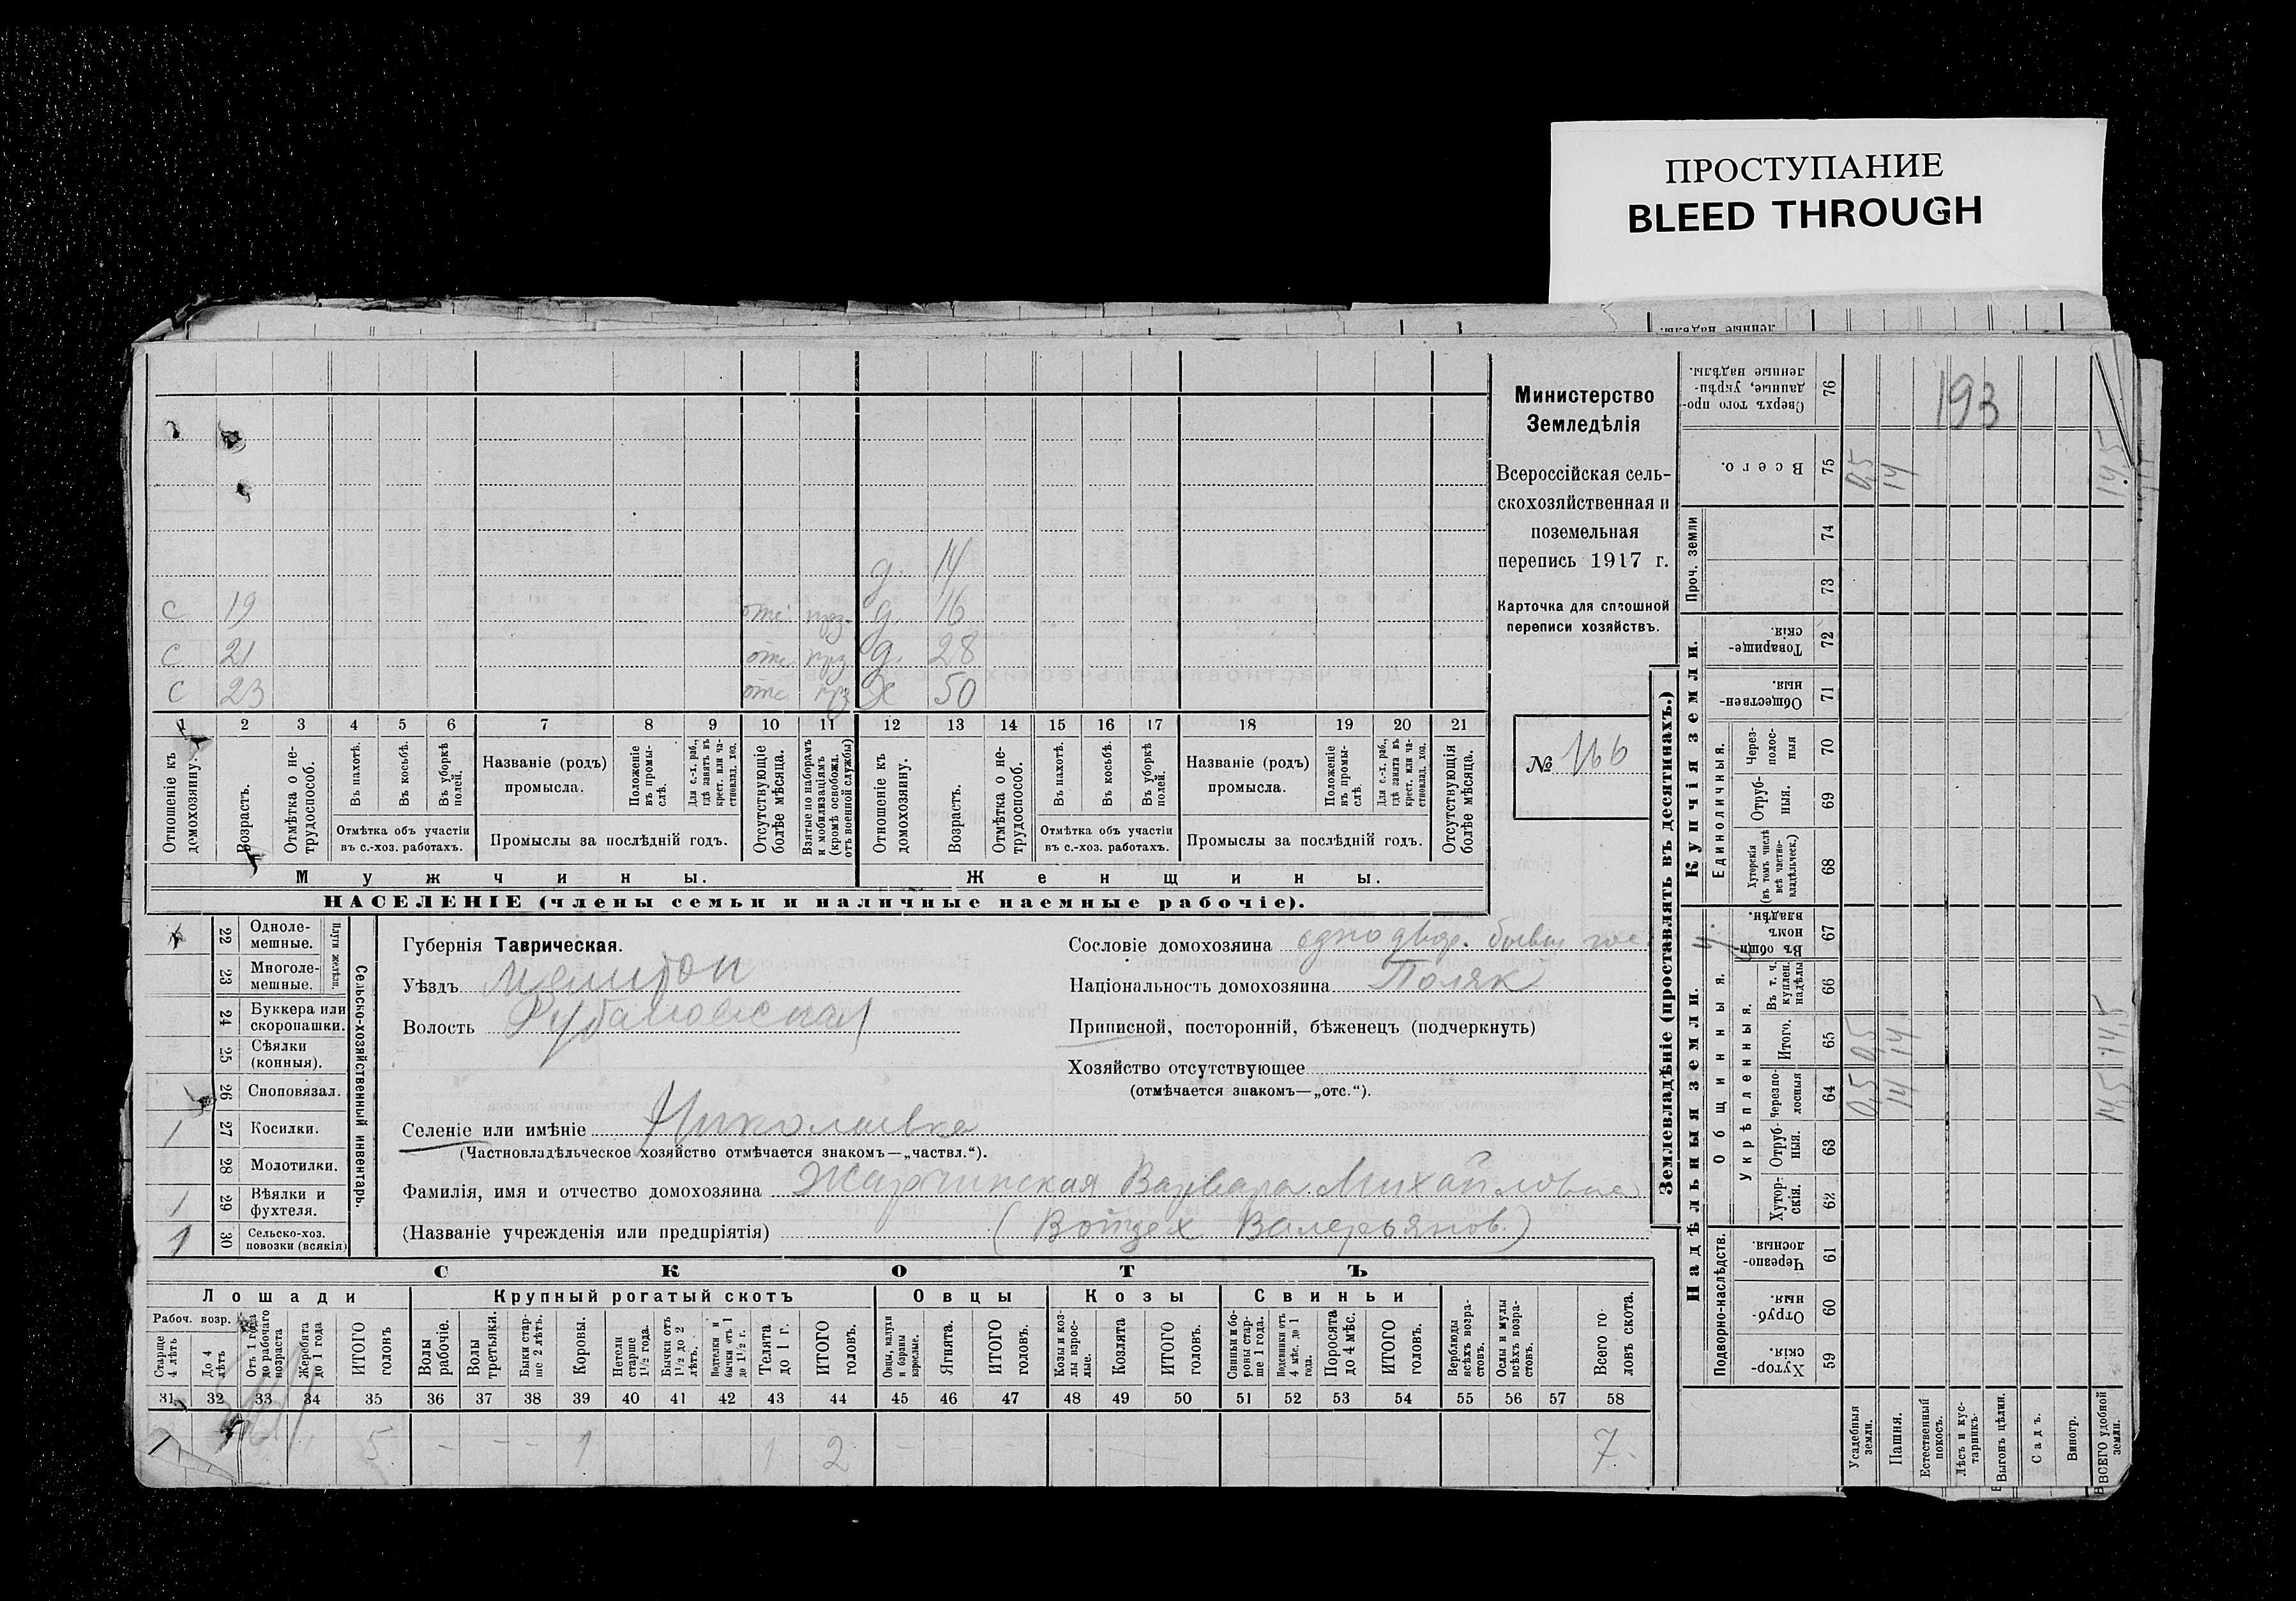 ПРОСТУПАНИЕ
BLEED THROUGH
Министерство
Земледѣлія
Всероссійская сель-
скохозяйственная и
поземельная
перепись 1917 г.
Карточка для сплошной
переписи хозяйствъ.
№ 166
193
д. 14
с 19 отс. д. 16
с 21 отс. д. 28
с 23 отс. Х 50
1 2 3 4 5 6 7 8 9 10 11 12 13 14 15 16 17 18 19 20 21
Отношеніе къ домохозяину.
Возрастъ.
Отмѣтка о не-трудоспособ.
Въ пахотѣ.
Въ косьбѣ.
Въ уборкѣ полей.
Отмѣтка объ участіи въ с.-хоз. работахъ.
Названіе (родъ) промысла.
Положеніе въ промы-слѣ.
Для с.-х. раб., гдѣ занятъ въ крест. или ча-стновлад. хоз.
Промыслы за послѣдній годъ.
Отсутствующіе болѣе мѣсяца.
Взятые по наборамъ и мобилизаціямъ (кромѣ освобожд. отъ военной службы)
Отношеніе къ домохозяину.
Возрастъ.
Отмѣтка о не-трудоспособ.
Въ пахотѣ.
Въ косьбѣ.
Въ уборкѣ полей.
Отмѣтка объ участіи въ с.-хоз. работахъ.
Названіе (родъ) промысла.
Положеніе въ промы-слѣ.
Для с.-х. раб., гдѣ занята въ крест. или ча-стновлад. хоз.
Промыслы за послѣдній годъ.
Отсутствующія болѣе мѣсяца.
Мужчины. Женщины.
НАСЕЛЕНІЕ (члены семьи и наличные наемные рабочіе).
Сельско-хозяйственный инвентарь.
Плуги желѣзн.
22 Одноле-мешные.
23 Многоле-мешные.
24 Буккера или скоропашки.
25 Сѣялки (конныя).
26 Сноповязал.
1 27 Косилки.
28 Молотилки.
1 29 Вѣялки и фухтеля.
1 30 Сельско-хоз. повозки (всякія)
Губернія Таврическая.
Уѣздъ Мелитоп
Волость Рубановская
Селеніе или имѣніе Николаевка
(Частновладѣльческое хозяйство отмѣчается знакомъ—„частвл.“).
Фамилія, имя и отчество домохозяина Жарчинская Варвара Михайловна
(Названіе учрежденія или предпріятія) (Войцех Валерьянов.)
Сословіе домохозяина
Національность домохозяина Поляк
Приписной, посторонній, бѣженецъ (подчеркнуть)
Хозяйство отсутствующее
(отмѣчается знакомъ—„отс.“).
СКОТЪ
Лошади Крупный рогатый скотъ Овцы Козы Свиньи
Рабоч. возр.
Старше 4 лѣтъ
До 4 лѣтъ
Отъ 1 года до рабочаго возраста
Жеребята до 1 года
ИТОГО головъ
Волы рабочіе.
Волы третьяки.
Быки стар-ше 2 лѣтъ.
Коровы.
Нетели старше 1½ года.
Бычки отъ 1½ до 2 лѣтъ.
Подтелки и бычки отъ 1 до 1½ г.
Телята до 1 г.
ИТОГО головъ.
Овцы, валухи и бараны взрослые.
Ягнята.
ИТОГО головъ.
Козы и коз-лы взрос-лые.
Козлята
ИТОГО головъ.
Свиньи и бо-ровы стар-ше 1 года.
Подсвинки отъ 4 мѣс. до 1 года.
Поросята до 4 мѣс.
ИТОГО головъ.
Верблюды всѣхъ возра-стовъ.
Ослы и мулы всѣхъ возра-стовъ.
Всего го-ловъ скота.
31 32 33 34 35 36 37 38 39 40 41 42 43 44 45 46 47 48 49 50 51 52 53 54 55 56 57 58
5 — — — 1 1 2 — — — — — 7.
Землевладѣніе (проставлять въ десятинахъ.)
Купчія земли.
Надѣльныя земли.
Сверхъ того про-данные, укрѣп-ленные надѣлы. 76
Всего. 75 0,5 14 14,5
Проч. земли 74
73
Товарище-скія. 72
Обществен-ныя. 71
Единоличныя.
Через-полос-ныя 70
Отруб-ныя. 69
Хуторскія (въ томъ числѣ всѣ частно-владѣльческ.) 68
Общинныя.
Въ общин-номъ владѣн. 67
Укрѣпленныя.
Въ т. ч. куплен. надѣлы 66
Итого. 65 0,5 14 14,5
Черезпо-лосныя 64 0,5 14 14,5
Отруб-ныя. 63
Хутор-скія. 62
Подворно-наслѣдств.
Черезпо-лосныя. 61
Отруб-ныя. 60
Хутор-скія. 59
Усадебныя земли.
Пашня.
Естественный покосъ.
Лѣсъ и кус-тарникъ.
Выгонъ цѣлин.
Садъ.
Виногр.
ВСЕГО удобной земли.